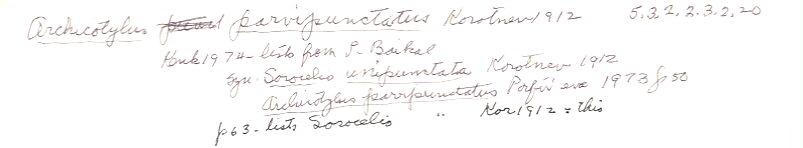 Archicotylus parvipunctatus Korotnev 1912 5.3.2.2.3.2.20
Kenk 1974 - lists from L. Baikal
Syn. Sorocelis unipunctata Korotnev 1912
Archicotylus parvipunctatus Porfir'eva 1973 p 50
p 63 - lists Sorocelis " Kor 1912 = this